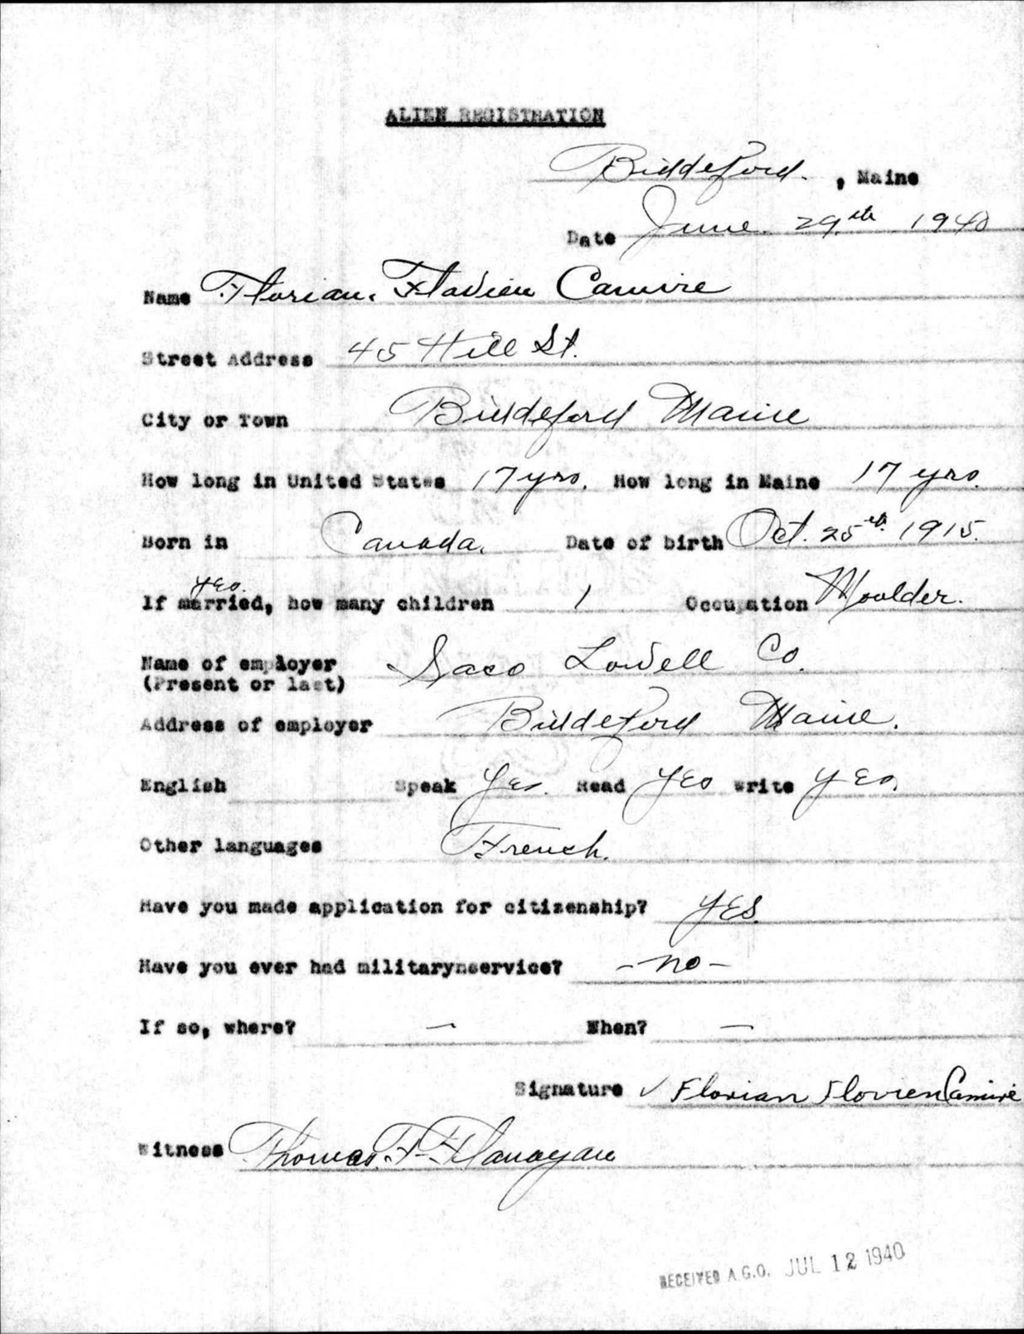 ALIEN REGISTRATION
Biddeford. , Maine
Date June. 29.th 1940
Name Florian. Flavien Camire
Street Address 45 Hill St.
City or Town Biddeford Maine
How long in United States 17 yrs. How long in Maine 17 yrs.
Born in Canada. Date of birth Oct. 25th. 1915.
yes.
If married, how many children 1 Occupation Moulder.
Name of employer Saco Lowell Co.
(Present or last)
Address of employer Biddeford Maine.
English Speak Yes. Read Yes Write Yes.
Other languages French.
Have you made application for citizenship? YES.
Have you ever had militarynservice? - no -
If so, where? - When? -
Signature ✓ Florian Flovien Camire
Witness Thomas. F. Flanagan
RECEIVED A.G.O. JUL 12 1940